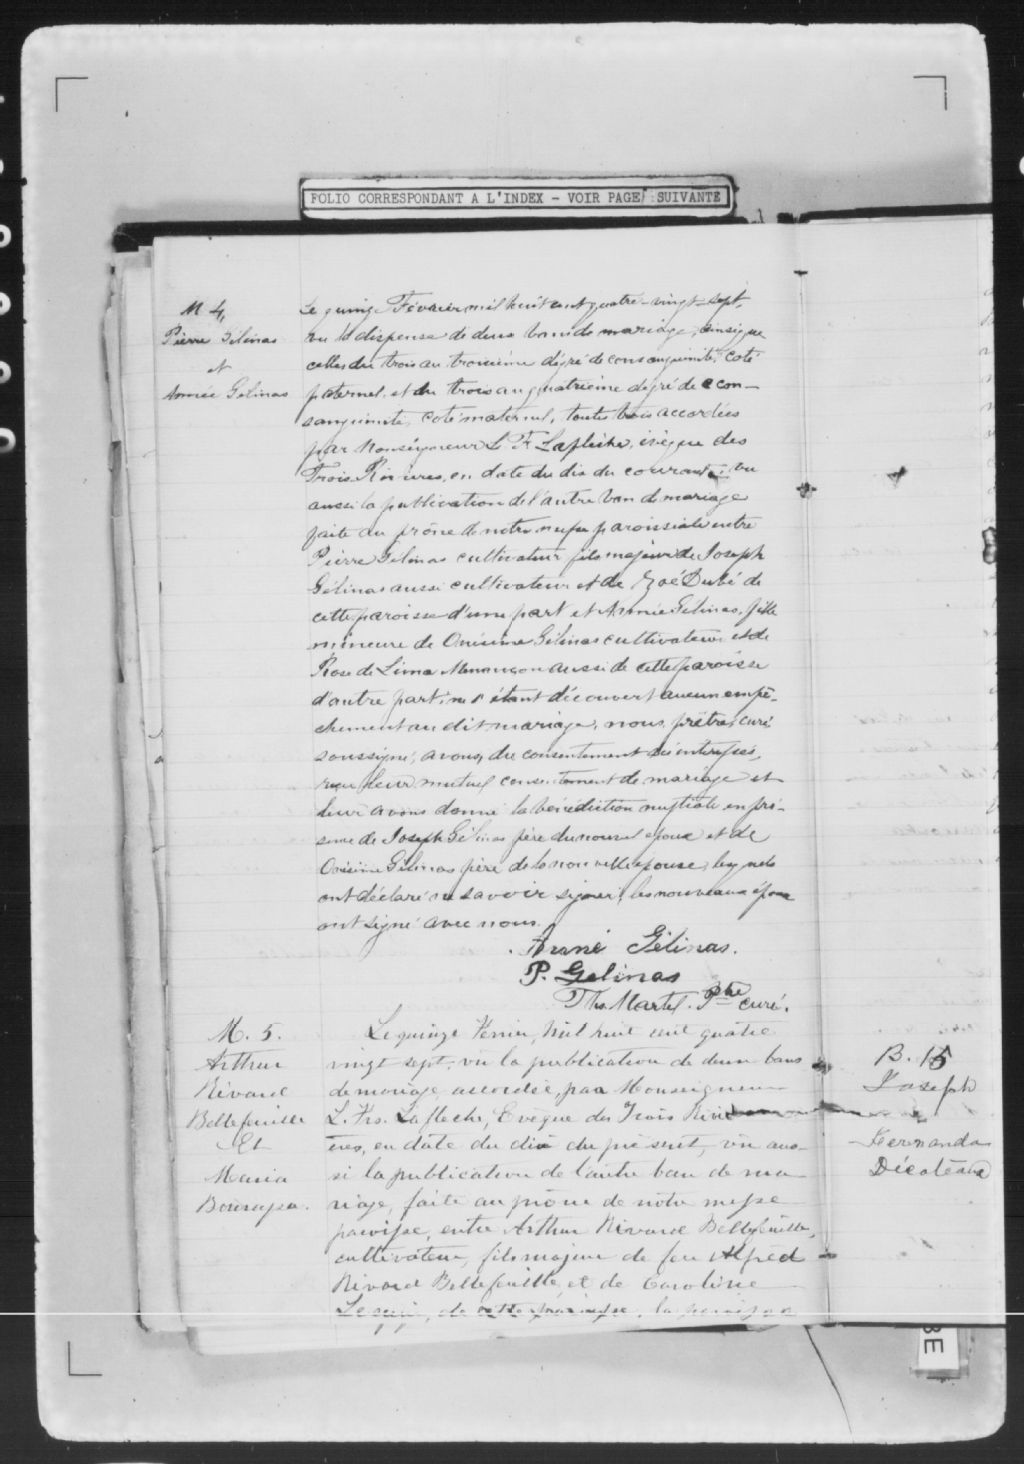 FOLIO CORRESPONDANT A L'INDEX - VOIR PAGE SUIVANTE
M 4,
Pierre Gélinas
et
Annie Gélinas
Le quinze Février mil huit cent quatre-vingt-sept,
vu la dispense de deux bans de mariage, ainsi que
celles du trois au troisième dégré de consanguinité, coté
paternel, et du trois au quatrième dégré de con-
sanguinité, coté maternel, toutes trois accordées
par Monseigneur L. F. Laflèche, évèque des
Trois Rivières, en date du dix du courant; vu
aussi la publication de l'autre ban de mariage
faite au prône de notre messe paroissiale entre
Pierre Gélinas cultivateur fils majeur de Joseph
Gélinas aussi cultivateur et de Zoé Dubé de
cette paroisse d'une part et Annie Gélinas, fille
mineure de Onésime Gélinas cultivateur et de
Rose de Lima Menançon aussi de cette paroisse
d'autre part; ne s'étant découvert aucun empê-
chement au dit mariage, nous, prêtre, curé
soussigné, avons, du consentement des intéressés,
reçu leur mutuel consentement de mariage et
leur avons donné la bénédiction nuptiale en pré-
sence de Joseph Gélinas père du nouvel époux et de
Onésime Gélinas père de la nouvelle épouse, lesquels
ont déclaré ne savoir signer; les nouveaux époux
ont signé avec nous.
Anné Gélinas.
P. Gelinas
Ths. Martel. Ptre curé.
M. 5.
Arthur
Rivard
Bellefeuille
Et
Maria
Le quinze Février, Mil huit cent quatre
vingt sept; vu la publication de deux bans
de mariage, accordée, par Monseigneur
L. Frs. Laflèche, Evèque des Trois Rivi
ères, en date du dix du présent, vu aus-
si la publication de l'autre ban de ma
riage, faite au prône de notre messe
paroisse, entre Arthur Rivard Bellefeuille,
cultivateur, fils majeur de feu Alfred
Rivard Bellefeuille, et de Caroline
de cette paroisse, la paroisse
B. 15
Joseph
Fernando
Décoteau